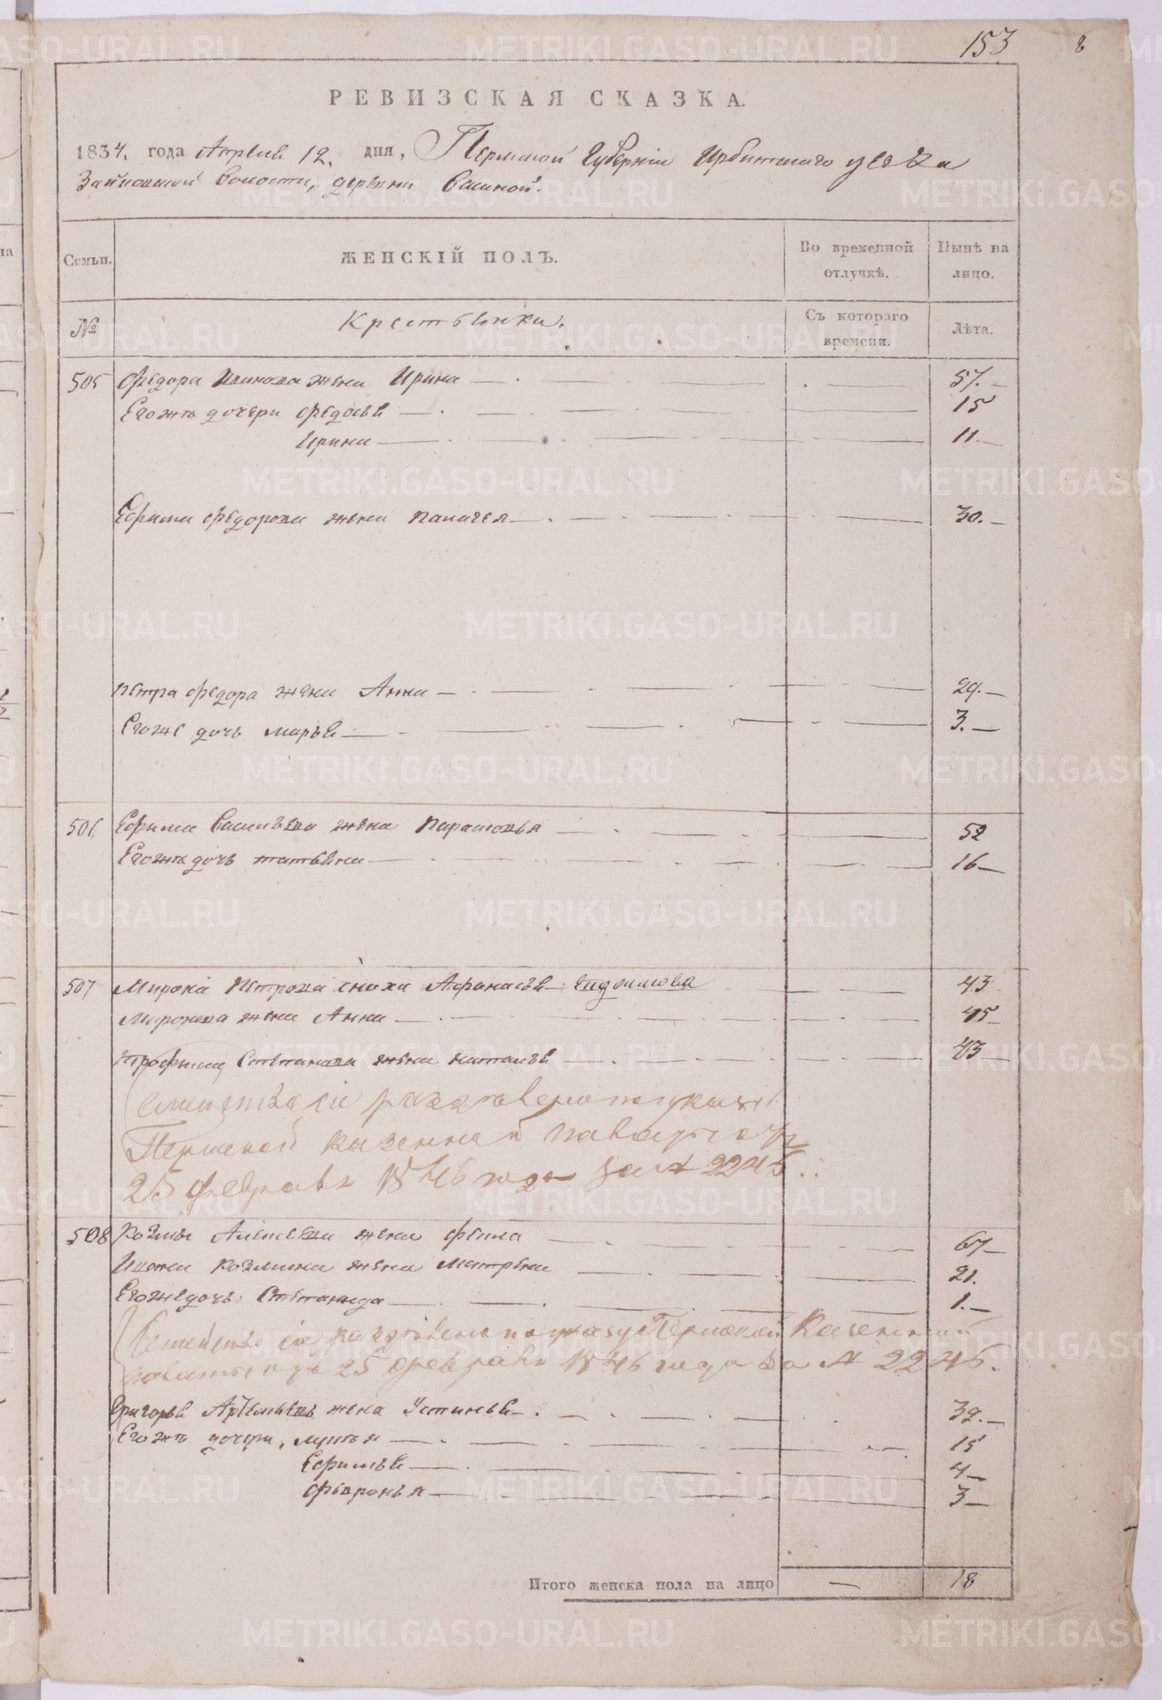 153 8
РЕВИЗСКАЯ СКАЗКА.
1834. года Апреля 12. дня, Пермской Губернiи Ирбитскаго уезда
Зайковской Волости, деревни
Семьи. ЖЕНСКIЙ ПОЛЪ. Во временной отлучкѣ. Нынѣ на лицо.
№ Крестьянки. Съ котораго времени. Лѣта.
505 Федора Иванова жена Ирина — 57. —
Егожъ дочери Федосья — 15
Ирина — 11. —
Ефима Федорова жена Палагея — 30. —
Петра Федора жена Анна — 29. —
Егоже дочь Марья — 3. —
506 Ефима Васильева жена Парасковья — 52
Егожъ дочь Татьяна — 16 —
507 Мирона Петрова сноха Афанасья 43
Миронова жена Анна — 45
Трофима Степанова жена Наталья — 43 —
Семейство сiе по указу
Пермской казенной палаты отъ
25 февраля 1846 года за № 2245.
508 Козмы Алексеева жена Фекла — 67 —
козмина жена Матрена 21.
Егоже дочь Степанида — 1. —
Семейство сiе по указу Пермской Казенной
палаты отъ 25 февраля 1846 года за № 2246.
Григорья Артемьева жена Устинья — 39. —
Егожъ дочери, Лукия — 15
Ефимья — 4 —
Февронья — 3 —
Итого женска пола на лицо — 18
METRIKI.GASO-URAL.RU